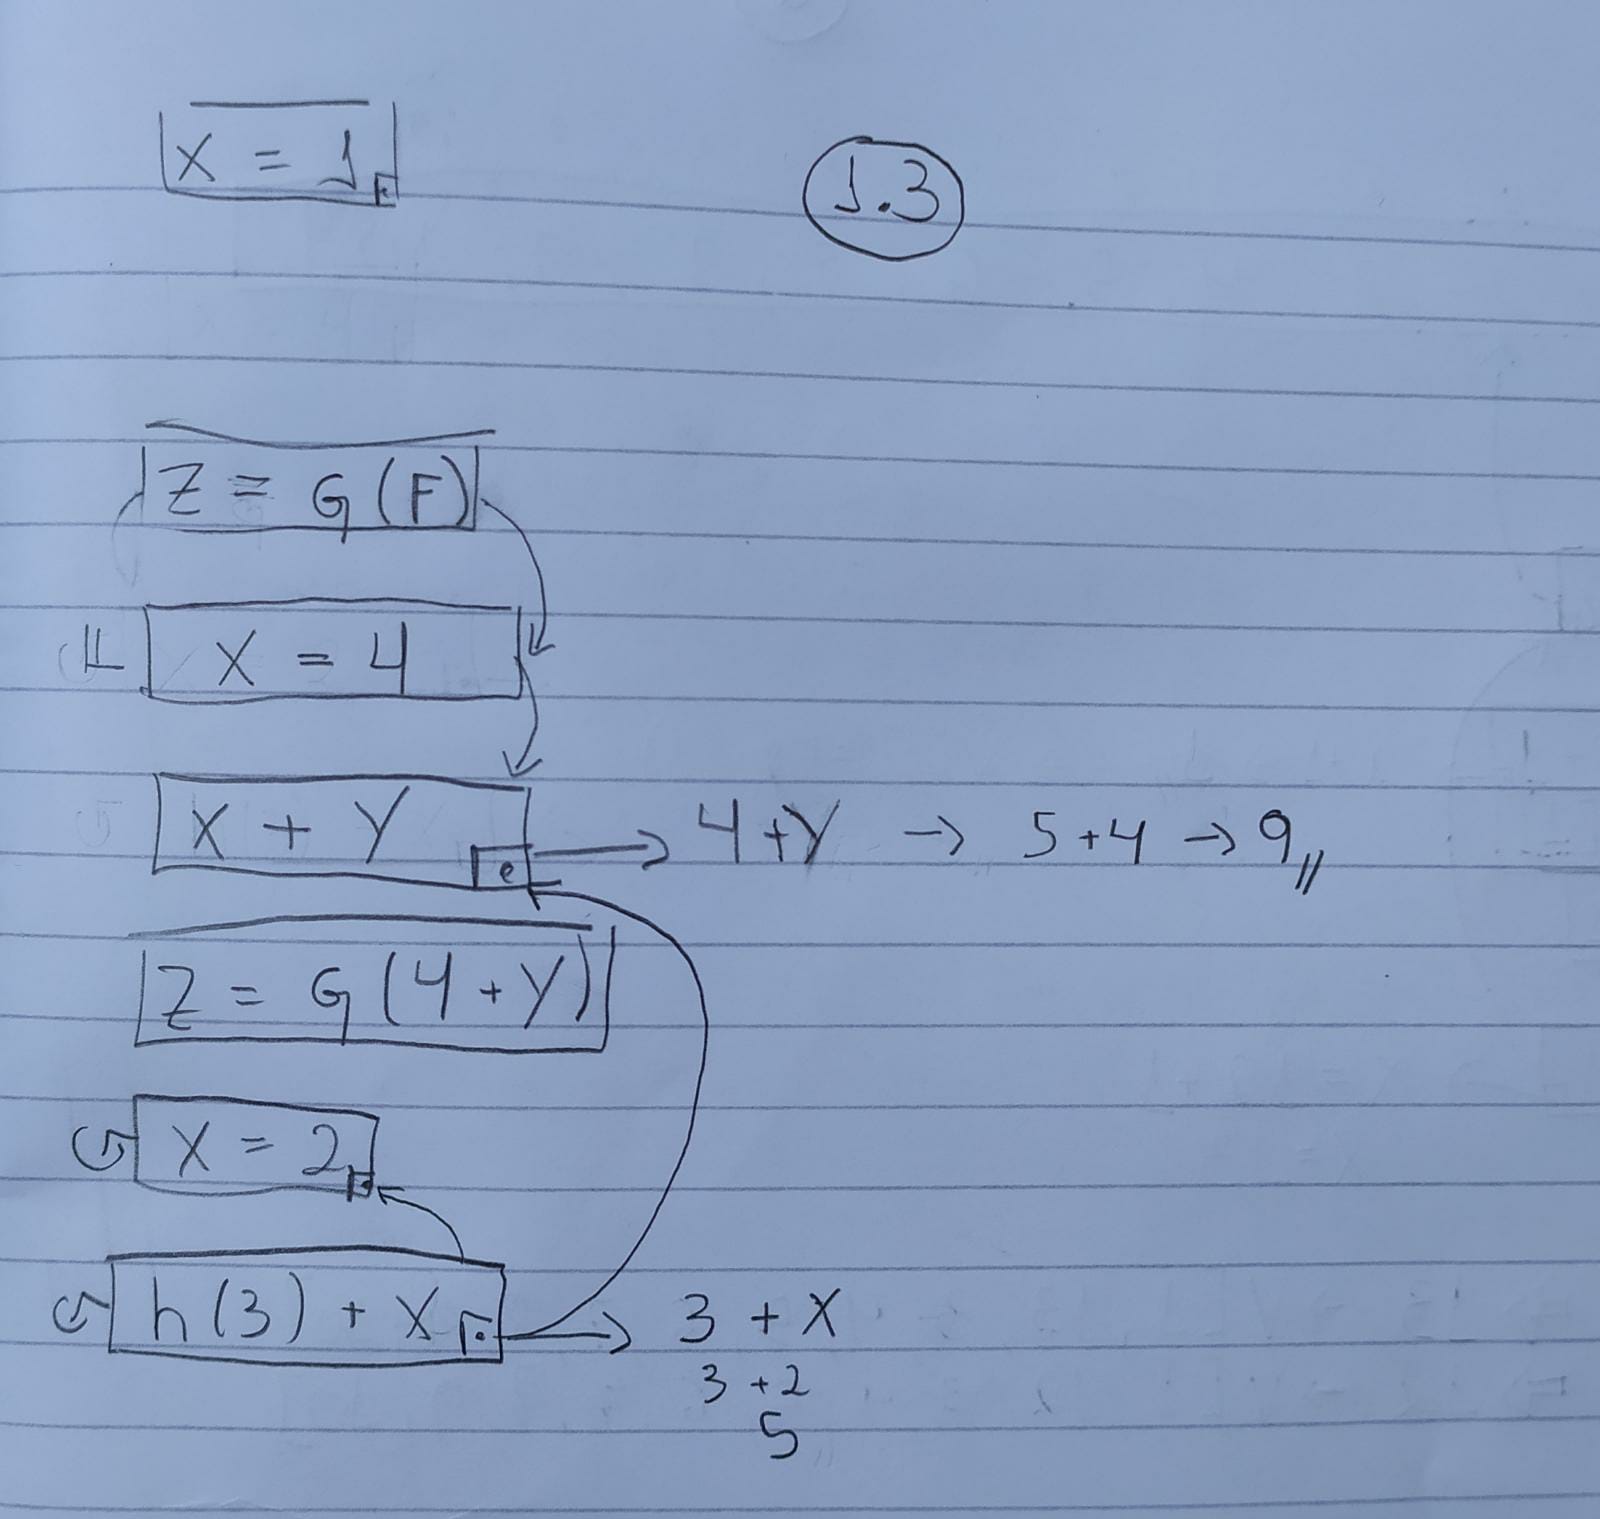 X = 1
1.3
Z = G(F)
F X = 4
X + Y → 4+Y → 5+4 → 9
Z = G(4+Y)
G X = 2
G h(3) + X → 3 + X
3 + 2
5